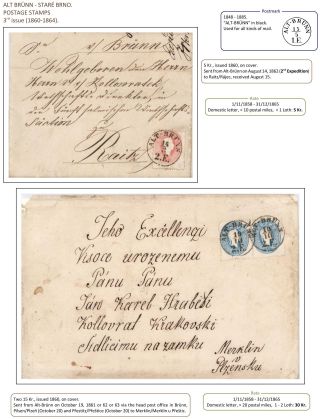 ALT BRÜNN - STARÉ BRNO.
POSTAGE STAMPS
3rd issue (1860-1864).
Postmark
1840 - 1885.
"ALT-BRÜNN" in black.
Used for all kinds of mail.
ALT-BRÜNN
1.E.
5 Kr., issued 1860, on cover.
Sent from Alt-Brünn on August 14, 1862 (2nd Expedition)
to Raitz/Rájec, received August 15.
Rate
1/11/1858 - 31/12/1865
Domestic letter, < 10 postal miles, < 1 Loth: 5 Kr.
v/ Brünn
Wohlgeboren dem Herrn
Herrn v/
Direktion
Raitz
ALT-BRÜNN
14
2.E.
Jeho Excellenzi
Visoce urozenemu
Pánu Pánu
Ján Karel Hraběti
Kollovrat Krakovski
Sidlicimu na zamku
Merklin
u
ALT-BRÜNN
ALT-BRÜNN
Two 15 Kr., issued 1860, on cover.
Sent from Alt-Brünn on October 19, 1861 or 62 or 63 via the head post office in Brünn,
Pilsen/Plzeň (October 20) and Přestitz/Přeštice (October 20) to Merklin/Merklín u Přeštic.
Rate
1/11/1858 - 31/12/1865
Domestic letter > 20 postal miles, 1 - 2 Loth: 30 Kr.